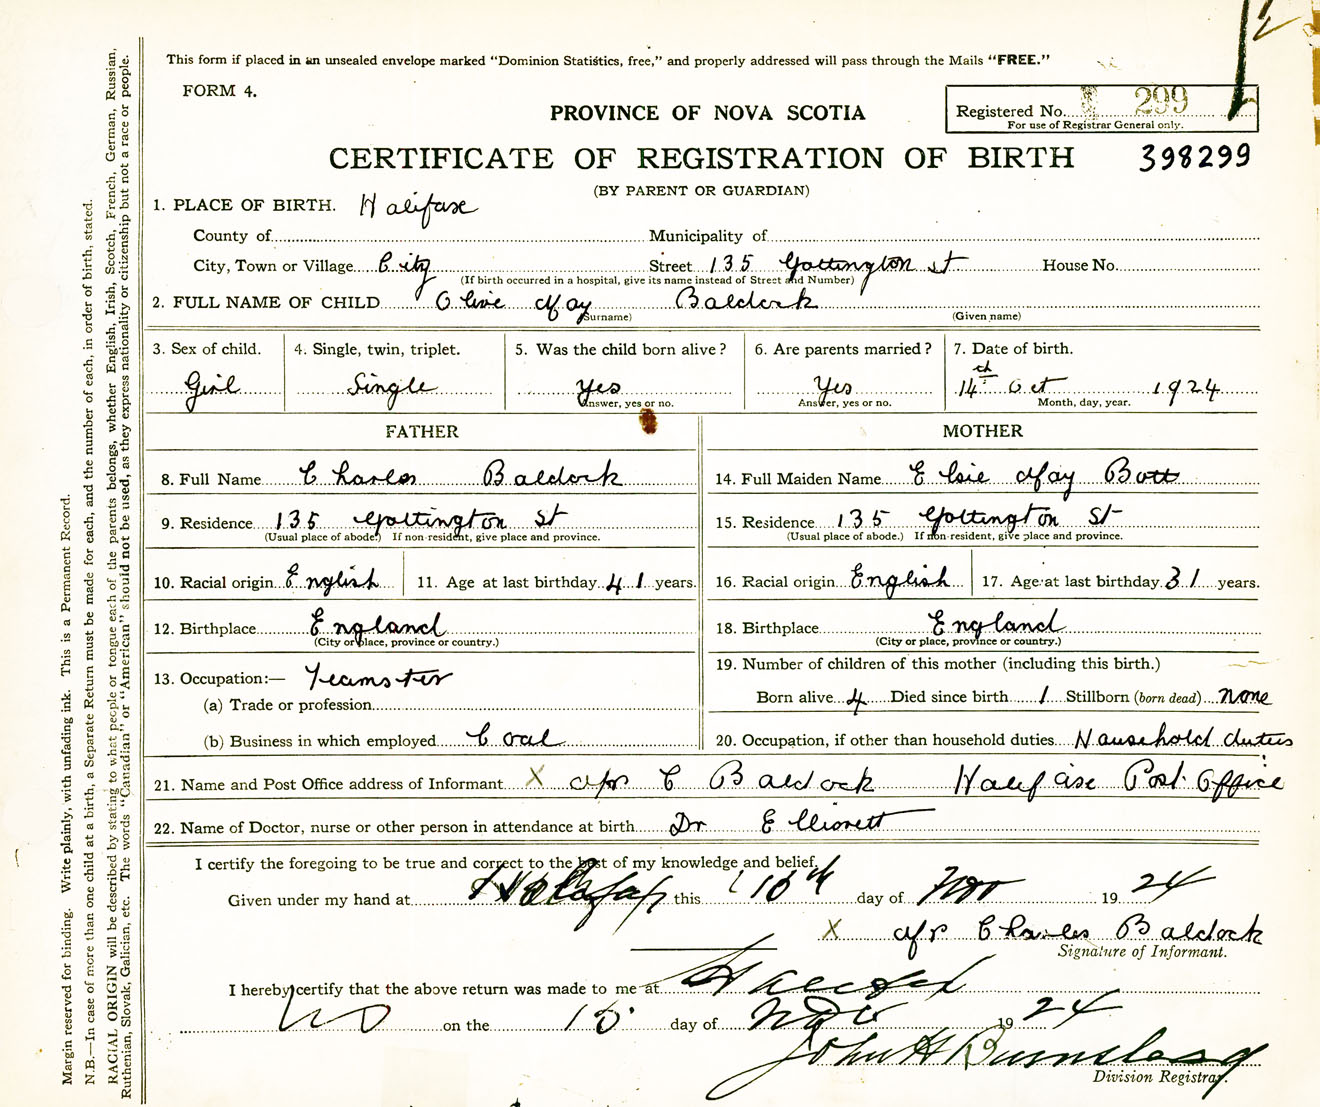 This form if placed in an unsealed envelope marked "Dominion Statistics, free," and properly addressed will pass through the Mails "FREE."
FORM 4.
PROVINCE OF NOVA SCOTIA
Registered No. 299
For use of Registrar General only.
CERTIFICATE OF REGISTRATION OF BIRTH 398299
(BY PARENT OR GUARDIAN)
1. PLACE OF BIRTH. Halifax
County of Municipality of
City, Town or Village City Street 135 Gottington St House No.
(If birth occurred in a hospital, give its name instead of Street and Number)
2. FULL NAME OF CHILD Olive May Baldock
(Surname) (Given name)
3. Sex of child. 4. Single, twin, triplet. 5. Was the child born alive? 6. Are parents married? 7. Date of birth.
Girl Single Yes Yes 14th Oct 1924
Answer, yes or no. Answer, yes or no. Month, day, year.
FATHER MOTHER
8. Full Name Charles Baldock 14. Full Maiden Name Elsie May Bott
9. Residence 135 Gottington St 15. Residence 135 Gottington St
(Usual place of abode.) If non-resident, give place and province. (Usual place of abode.) If non-resident, give place and province.
10. Racial origin English 11. Age at last birthday 41 years. 16. Racial origin English 17. Age at last birthday 31 years.
12. Birthplace England 18. Birthplace England
(City or place, province or country.) (City or place, province or country.)
13. Occupation:— Teamster 19. Number of children of this mother (including this birth.)
(a) Trade or profession Born alive 4 Died since birth 1 Stillborn (born dead) none
(b) Business in which employed Coal 20. Occupation, if other than household duties Household duties
21. Name and Post Office address of Informant X Mrs C Baldock Halifax Post Office
22. Name of Doctor, nurse or other person in attendance at birth Dr
I certify the foregoing to be true and correct to the best of my knowledge and belief.
Given under my hand at Halifax this 10th day of Nov 1924
X Mrs Charles Baldock
Signature of Informant.
I hereby certify that the above return was made to me at Halifax
on the 10 day of Nov 1924
John H
Division Registrar.
Margin reserved for binding. Write plainly, with unfading ink. This is a Permanent Record.
N.B.—In case of more than one child at a birth, a Separate Return must be made for each, and the number of each, in order of birth, stated.
RACIAL ORIGIN will be described by stating to what people or tongue each of the parents belongs, whether English, Irish, Scotch, French, German, Russian,
Ruthenian, Slovak, Galician, etc. The words "Canadian" or "American" should not be used, as they express nationality or citizenship but not a race or people.